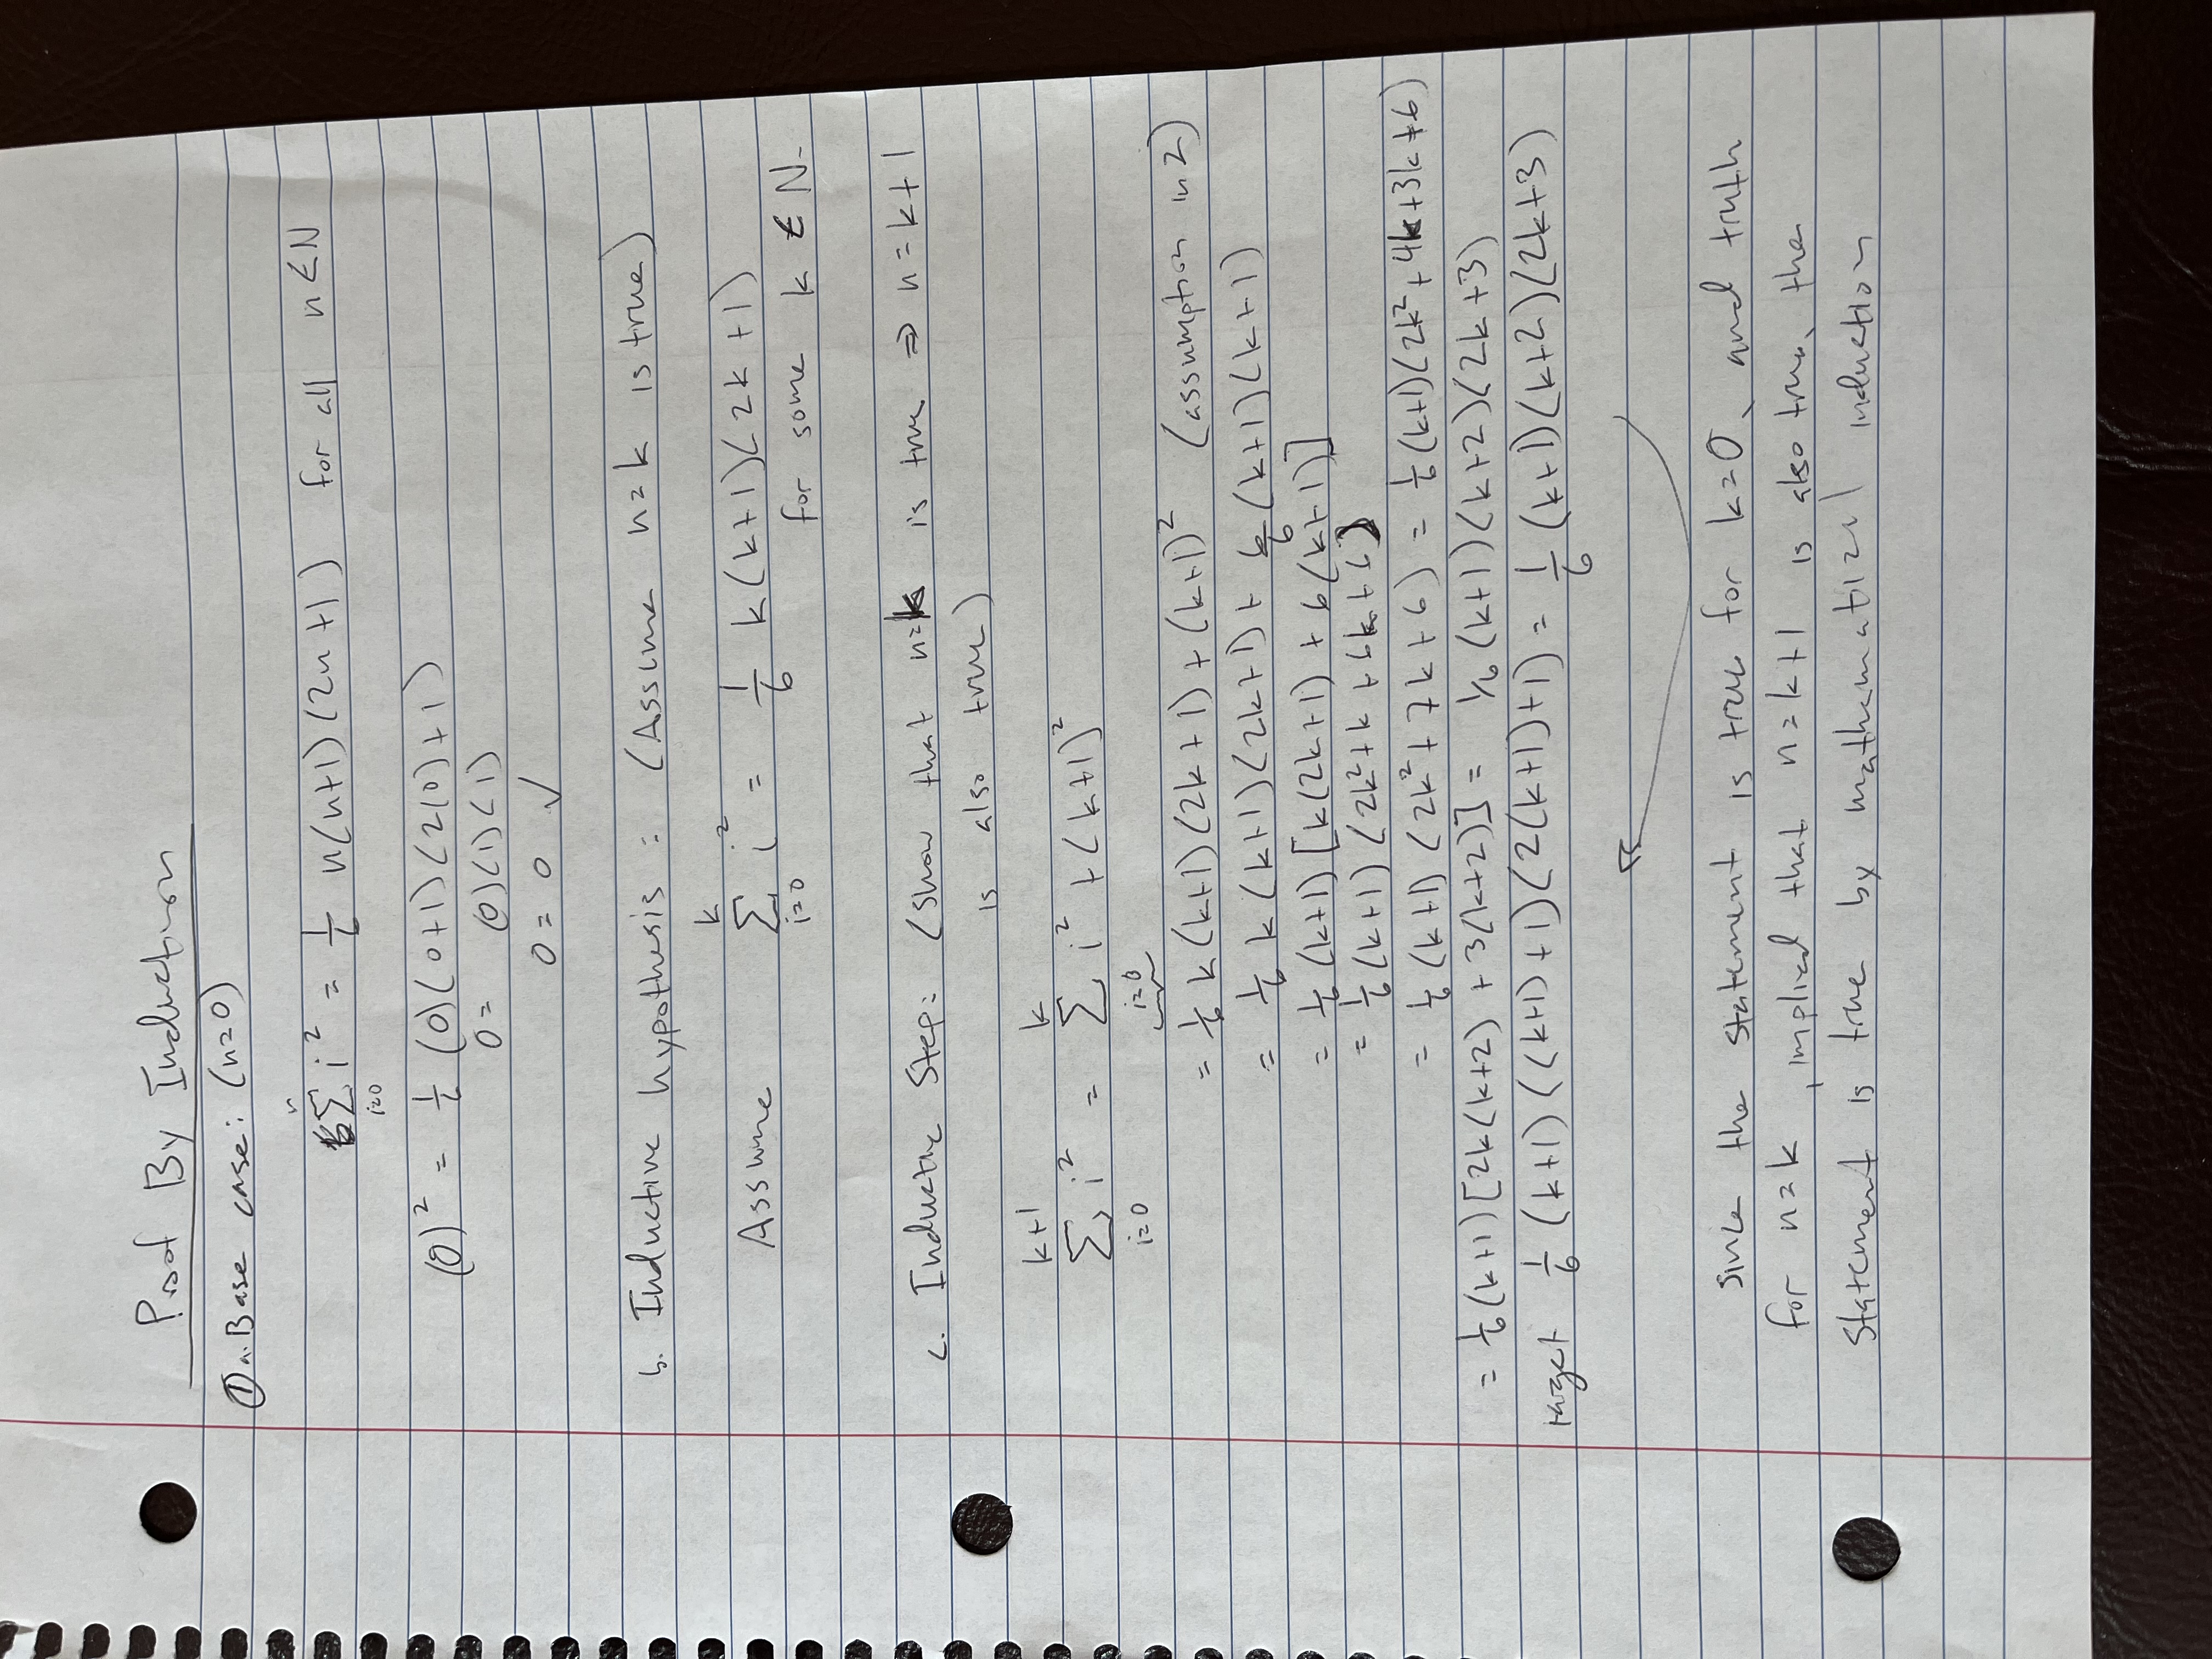 Proof By Induction
① a. Base case: (n=0)
n
∑ i² = 1/6 n(n+1)(2n+1) for all n ∈ N
i=0
(0)² = 1/6 (0)(0+1)(2(0)+1)
0 = (0)(1)(1)
0 = 0 ✓
b. Inductive hypothesis: (Assume n=k is true)
k
Assume ∑ i² = 1/6 k(k+1)(2k+1)
i=0 for some k ∈ N.
c. Inductive Step: (show that n=k is true ⇒ n=k+1
is also true)
k+1 k
∑ i² = ∑ i² + (k+1)²
i=0 i=0
= 1/6 k(k+1)(2k+1) + (k+1)² (assumption in 2)
= 1/6 k(k+1)(2k+1) + 6/6 (k+1)(k+1)
= 1/6 (k+1)[k(2k+1) + 6(k+1)]
= 1/6 (k+1)(2k²+k+6k+6)
= 1/6 (k+1)(2k²+7k+6) = 1/6 (k+1)(2k²+4k+3k+6)
= 1/6 (k+1)[2k(k+2) + 3(k+2)] = 1/6 (k+1)(k+2)(2k+3)
target 1/6 (k+1)((k+1)+1)(2(k+1)+1) = 1/6 (k+1)(k+2)(2k+3)
since the statement is true for k=0, and truth
for n=k, implied that n=k+1 is also true, the
statement is true by mathematical induction